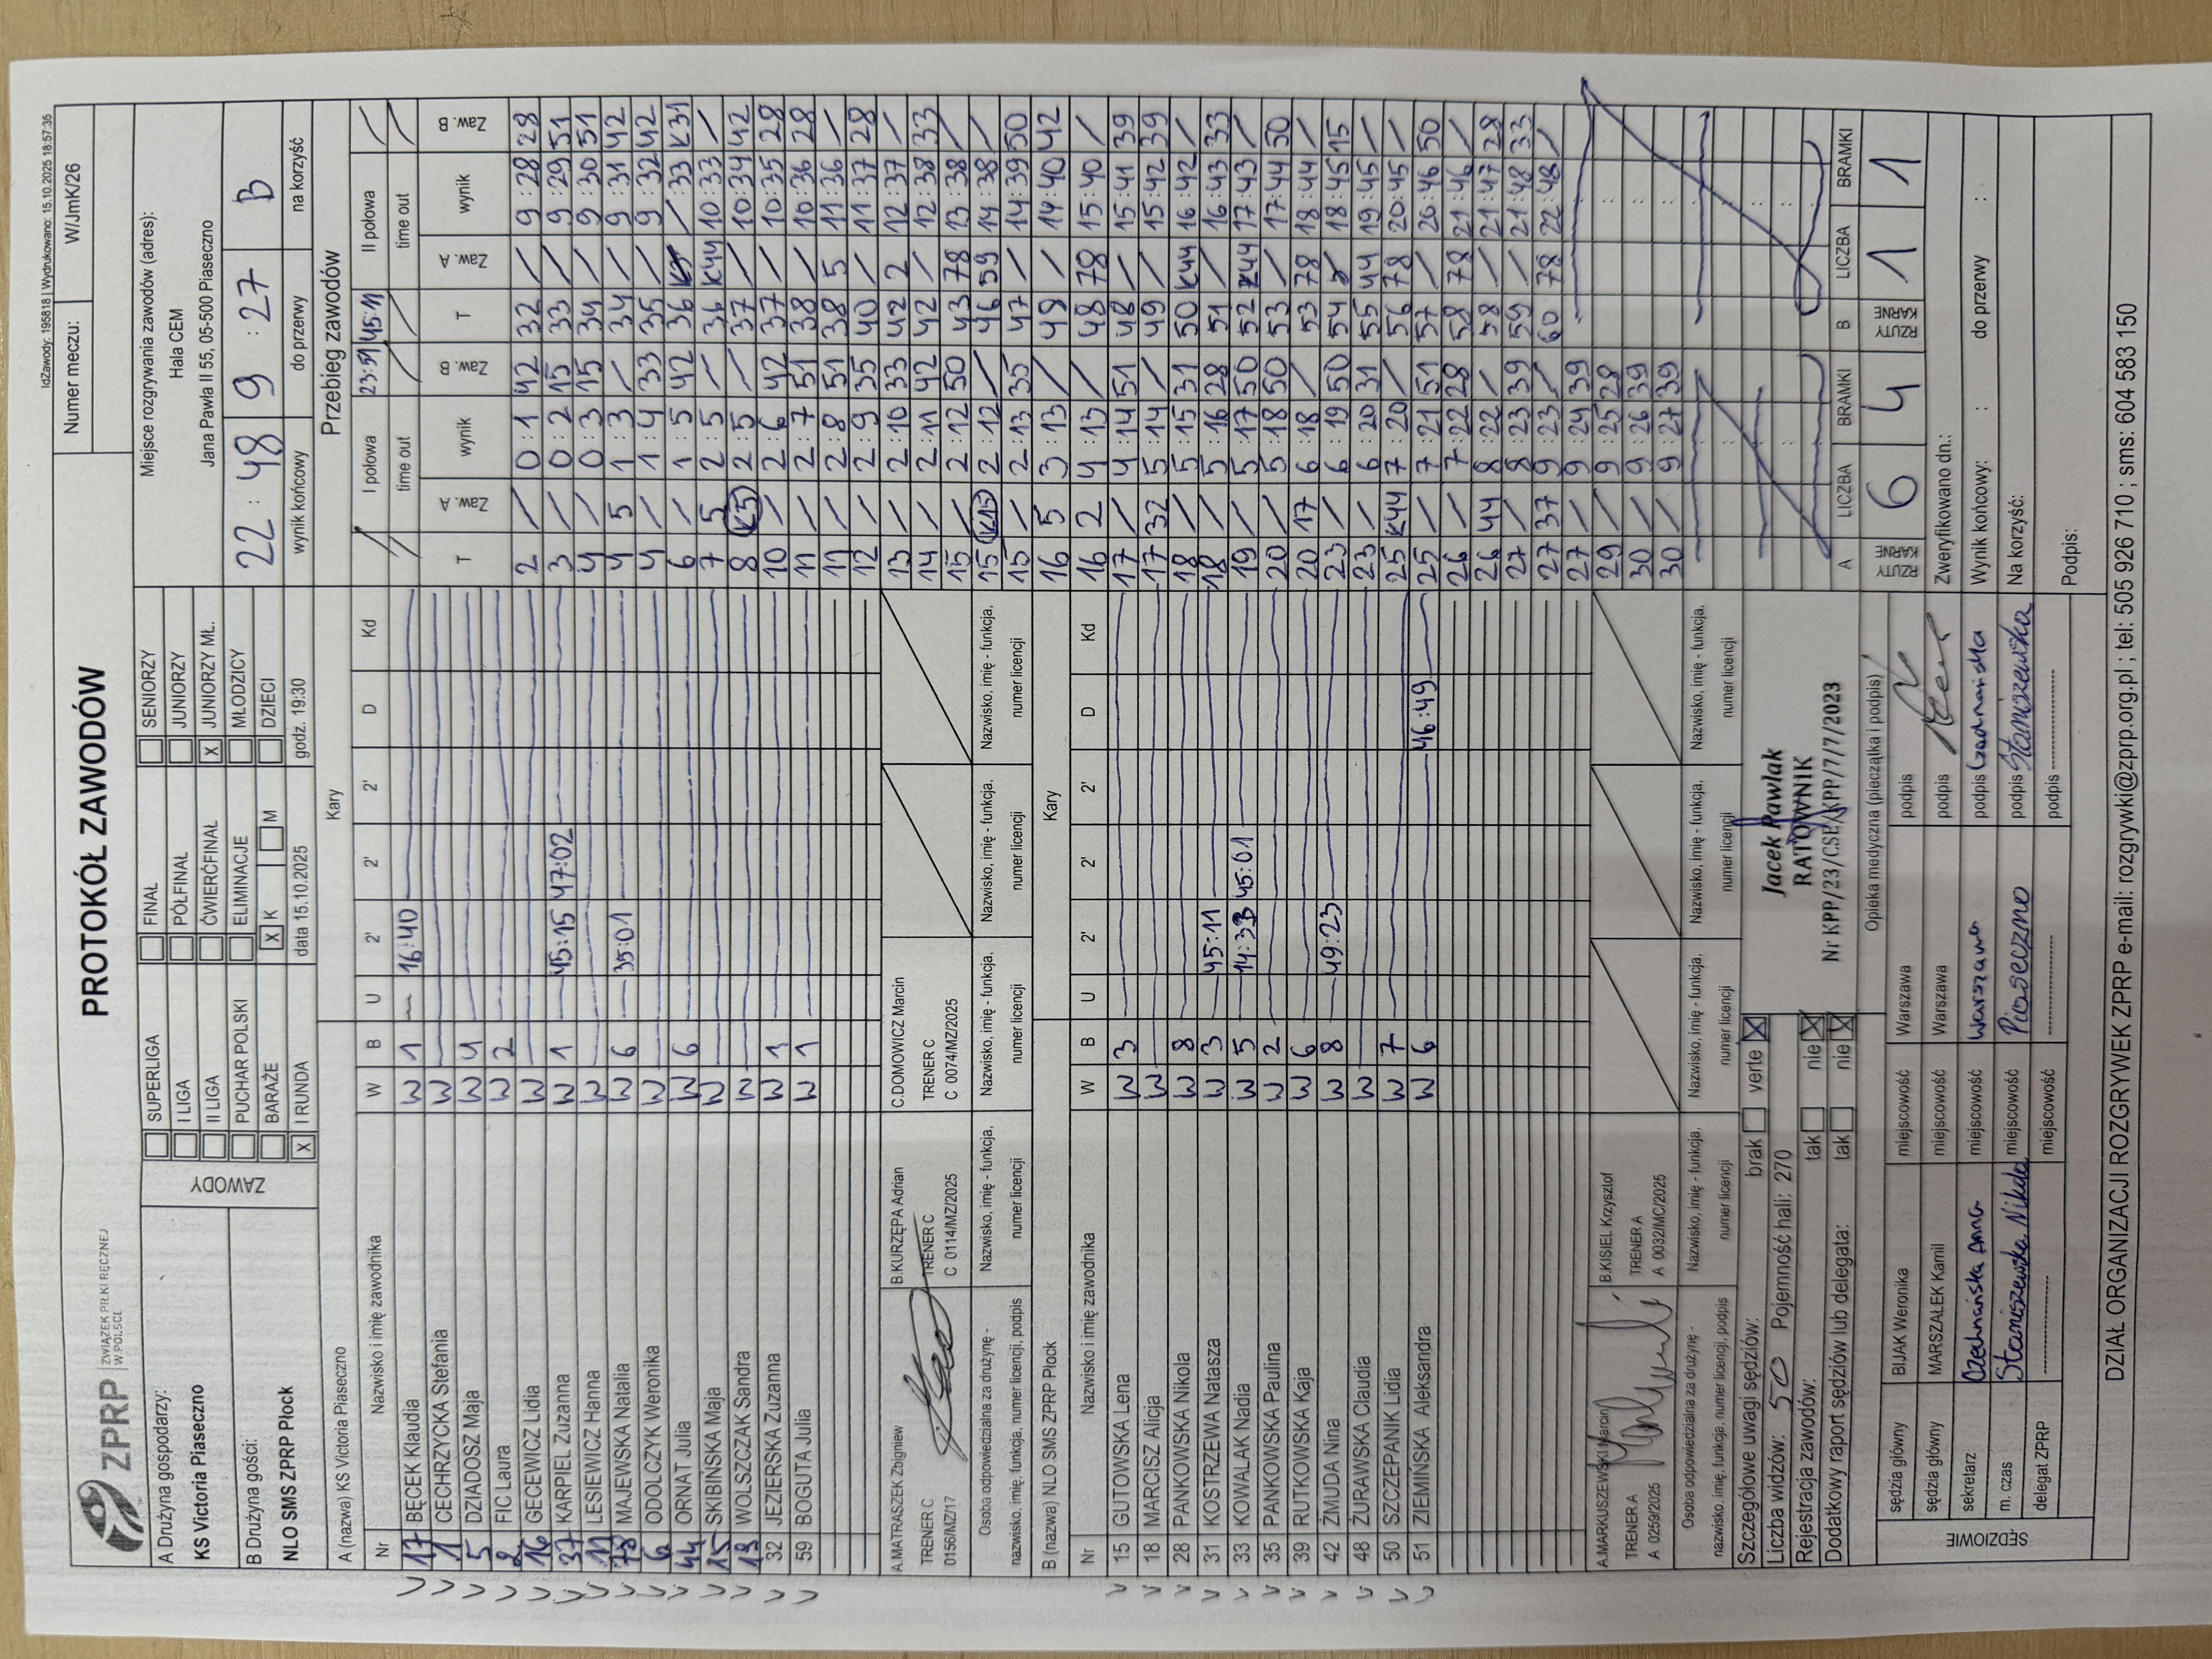 IdZawody: 195818 | Wydrukowano: 15.10.2025 18:57:35
ZPRP ZWIĄZEK PIŁKI RĘCZNEJ W POLSCE
PROTOKÓŁ ZAWODÓW
Numer meczu: W/JmK/26
A Drużyna gospodarzy:
KS Victoria Piaseczno
B Drużyna gości:
NLO SMS ZPRP Płock
ZAWODY
SUPERLIGA FINAŁ SENIORZY
I LIGA PÓŁFINAŁ JUNIORZY
II LIGA ĆWIERĆFINAŁ X JUNIORZY MŁ.
PUCHAR POLSKI ELIMINACJE MŁODZICY
BARAŻE X K M DZIECI
X I RUNDA data 15.10.2025 godz. 19:30
Miejsce rozgrywania zawodów (adres):
Hala CEM
Jana Pawła II 55, 05-500 Piaseczno
22 : 48 9 : 27 B
wynik końcowy do przerwy na korzyść
A (nazwa) KS Victoria Piaseczno Kary
Nr Nazwisko i imię zawodnika W B U 2' 2' 2' D Kd
17 BĘCEK Klaudia W 1 16:40
1 CECHRZYCKA Stefania W
5 DZIADOSZ Maja W 4
2 FIC Laura W 2
16 GECEWICZ Lidia W
37 KARPIEL Zuzanna W 1 45:15 47:02
11 LESIEWICZ Hanna W
78 MAJEWSKA Natalia W 6 35:01
6 ODOLCZYK Weronika W
44 ORNAT Julia W 6
15 SKIBIŃSKA Maja W
13 WOLSZCZAK Sandra W
32 JEZIERSKA Zuzanna W 1
59 BOGUTA Julia W 1
A.MATRASZEK Zbigniew B.KURZĘPA Adrian C.DOMOWICZ Marcin
TRENER C TRENER C TRENER C
0156/MZ/17 C 0114/MZ/2025 C 0074/MZ/2025
Osoba odpowiedzialna za drużynę - nazwisko, imię, funkcja, numer licencji, podpis
Nazwisko, imię - funkcja, numer licencji
Nazwisko, imię - funkcja, numer licencji
Nazwisko, imię - funkcja, numer licencji
Nazwisko, imię - funkcja, numer licencji
B (nazwa) NLO SMS ZPRP Płock Kary
Nr Nazwisko i imię zawodnika W B U 2' 2' 2' D Kd
15 GUTOWSKA Lena W 3
18 MARCISZ Alicja W
28 PANKOWSKA Nikola W 8
31 KOSTRZEWA Natasza W 3 45:11
33 KOWALAK Nadia W 5 14:33 45:01
35 PANKOWSKA Paulina W 2
39 RUTKOWSKA Kaja W 6
42 ŻMUDA Nina W 8 49:23
48 ŻURAWSKA Claudia W
50 SZCZEPANIK Lidia W 7
51 ZIEMIŃSKA Aleksandra W 6 46:49
A.MARKUSZEWSKI Marcin B.KISIEL Krzysztof
TRENER A TRENER A
A 0259/2025 A 0032/MC/2025
Osoba odpowiedzialna za drużynę - nazwisko, imię, funkcja, numer licencji, podpis
Nazwisko, imię - funkcja, numer licencji
Nazwisko, imię - funkcja, numer licencji
Nazwisko, imię - funkcja, numer licencji
Nazwisko, imię - funkcja, numer licencji
Szczegółowe uwagi sędziów: brak verte X
Liczba widzów: 50 Pojemność hali: 270
Rejestracja zawodów: tak nie X
Dodatkowy raport sędziów lub delegata: tak nie X
Jacek Pawlak
RATOWNIK
Nr KPP/23/CSE/KPP/7/7/2023
Opieka medyczna (pieczątka i podpis)
SĘDZIOWIE
sędzia główny BIJAK Weronika miejscowość Warszawa podpis
sędzia główny MARSZAŁEK Kamil miejscowość Warszawa podpis
sekretarz Czechańska Anna miejscowość Warszawa podpis
m. czas Staniszewska Nikola miejscowość Piaseczno podpis Staniszewska
delegat ZPRP miejscowość podpis
Przebieg zawodów
I połowa 23:51 45:11 II połowa
time out time out
T Zaw. A wynik Zaw. B T Zaw. A wynik Zaw. B
2 / 0:1 42 32 / 9:28 28
3 / 0:2 15 33 / 9:29 51
4 / 0:3 15 34 / 9:30 51
4 5 1:3 / 34 / 9:31 42
4 / 1:4 33 35 / 9:32 42
6 / 1:5 42 36 / :33 K31
7 5 2:5 / 36 K44 10:33 /
8 K5 2:5 / 37 / 10:34 42
10 / 2:6 42 37 / 10:35 28
11 / 2:7 51 38 / 10:36 28
11 / 2:8 51 38 5 11:36 /
12 / 2:9 35 40 / 11:37 28
13 / 2:10 33 42 2 12:37 /
14 / 2:11 42 42 / 12:38 33
15 / 2:12 50 43 78 13:38 /
15 K15 2:12 / 46 59 14:38 /
15 / 2:13 35 47 / 14:39 50
16 5 3:13 / 48 / 14:40 42
16 2 4:13 / 48 78 15:40 /
17 / 4:14 51 48 / 15:41 39
17 32 5:14 / 49 / 15:42 39
18 / 5:15 31 50 K44 16:42 /
18 / 5:16 28 51 / 16:43 33
19 / 5:17 50 52 K44 17:43 /
20 / 5:18 50 53 / 17:44 50
20 17 6:18 / 53 78 18:44 /
23 / 6:19 50 54 / 18:45 15
23 / 6:20 31 55 44 19:45 /
25 K44 7:20 / 56 78 20:45 /
25 / 7:21 51 57 / 20:46 50
26 / 7:22 28 58 78 21:46 /
26 44 8:22 / 58 / 21:47 28
27 / 8:23 39 59 / 21:48 33
27 37 9:23 / 60 78 22:48 /
27 / 9:24 39
29 / 9:25 28
30 / 9:26 39
30 / 9:27 39
A LICZBA BRAMKI B LICZBA BRAMKI
RZUTY KARNE 6 4 RZUTY KARNE 1 1
Zweryfikowano dn.:
Wynik końcowy: : do przerwy :
Na korzyść:
Podpis:
DZIAŁ ORGANIZACJI ROZGRYWEK ZPRP e-mail: rozgrywki@zprp.org.pl ; tel: 505 926 710 ; sms: 604 583 150